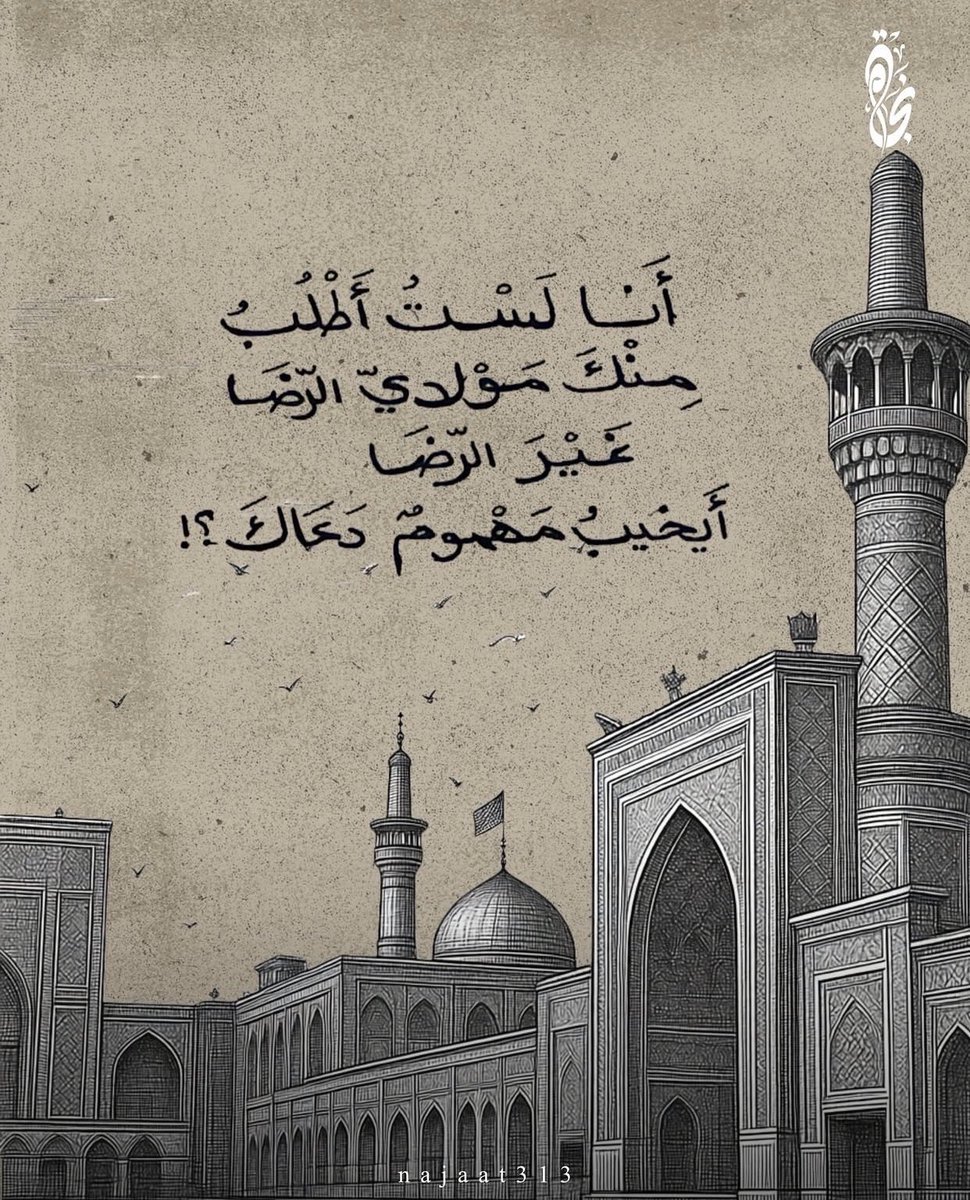 نجاة
أَنَا لَسْتُ أَطْلُبُ
مِنْكَ مَوْلديّ الرّضَا
غَيْرَ الرّضَا
أَيخيبُ مَهْمومٌ دَعَاكَ ؟!
najaat313